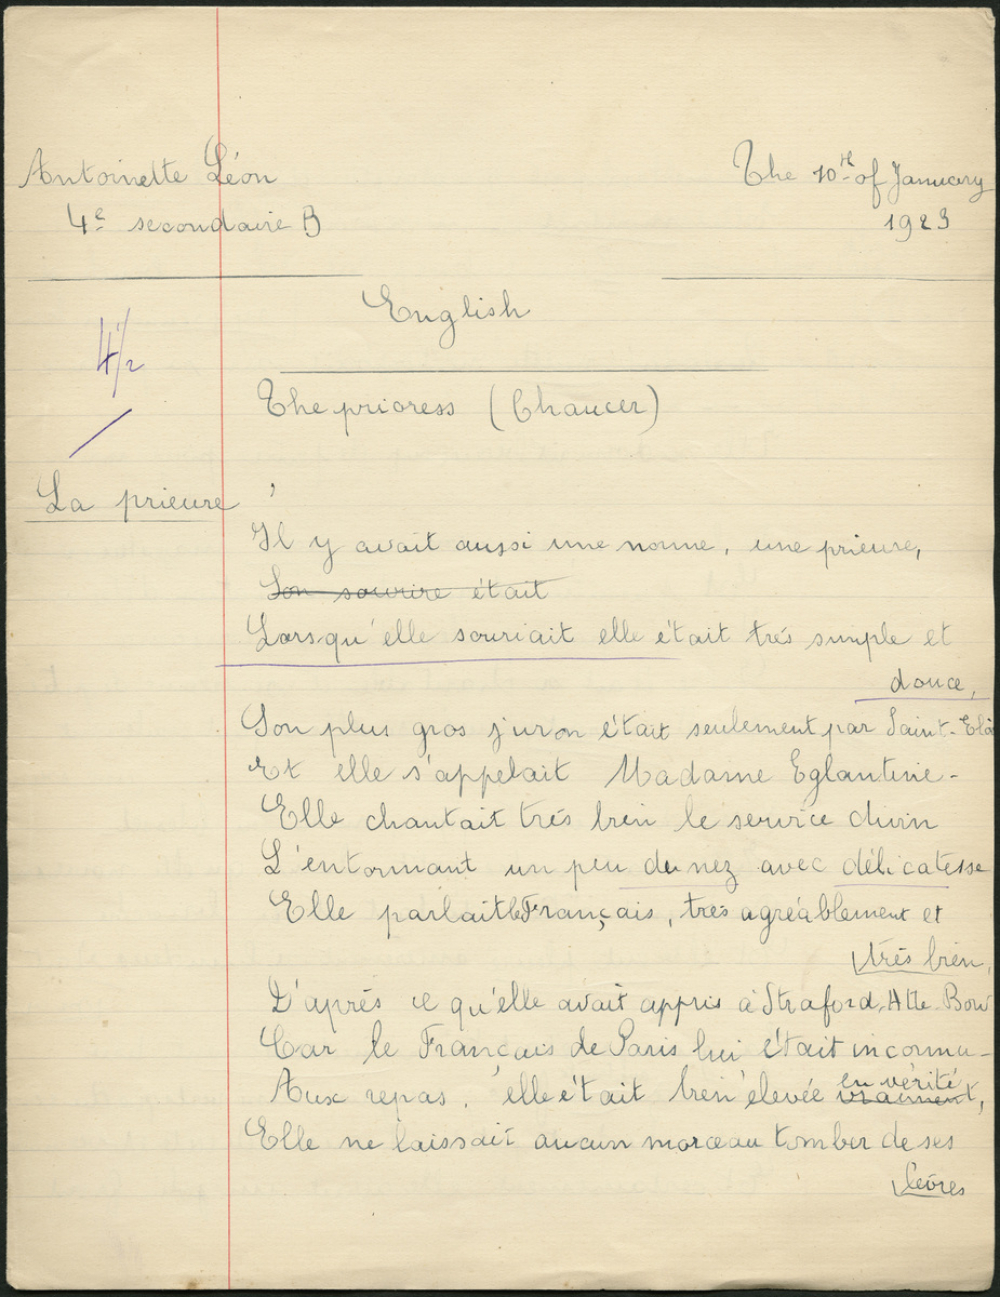 Antoinette Léon
The 10th of January
4e secondaire B
1923
English
4 1/2
The prioress (Chaucer)
La prieure
Il y avait aussi une nonne, une prieure,
Son sourire était
Lorsqu'elle souriait elle était très simple et
douce,
Son plus gros juron était seulement par Saint-Eloi
Et elle s'appelait Madame Eglantine-
Elle chantait très bien le service divin
L'entonnant un peu du nez avec délicatesse
Elle parlait le Français, très agréablement et
très bien,
D'après ce qu'elle avait appris à Straford, Atte Bow
Car le Français de Paris lui était inconnu-
en vérité
Aux repas, elle était bien élevée vraiment,
Elle ne laissait aucun morceau tomber de ses
lèvres